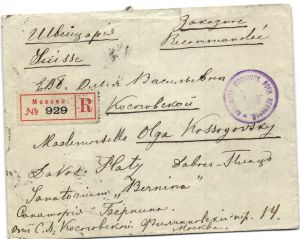 Швейцарія
Заказное
Suisse
Recommandée
Moscou.
R
№ 929
ЕВБ Ольгѣ Васильевнѣ
Косоговской
Mademoiselle Olga Kossogovsky
Davos Platz Давос-Плацъ
Sanatorium "Bernina"
Санаторія Бернина
отъ С. А. Косоговской Филипповскій пер. 14.
Москва.